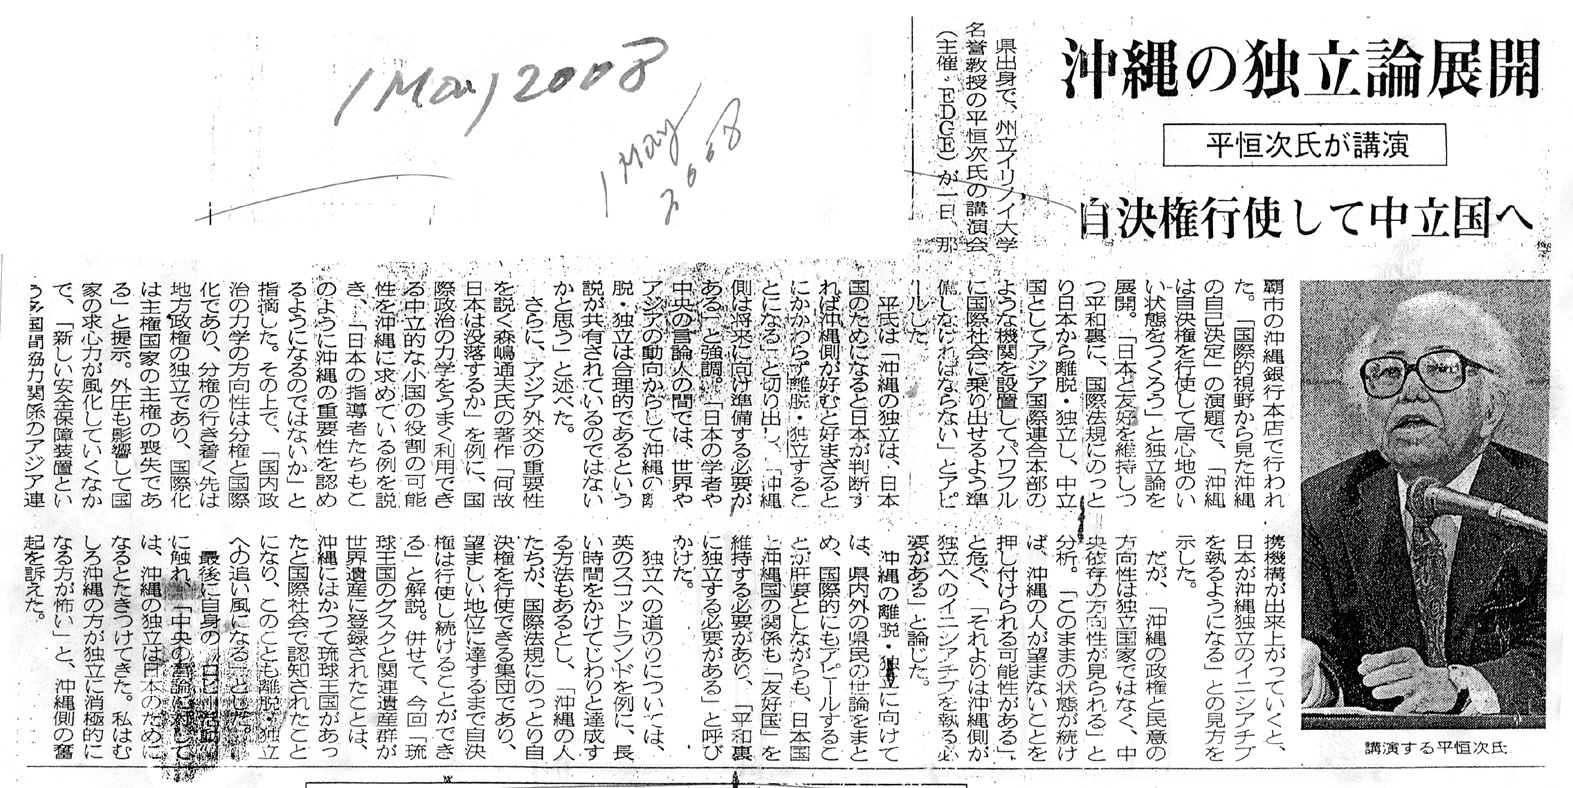 沖縄の独立論展開
平恒次氏が講演
自決権行使して中立国へ
1 May 2008
1 May
2008
県出身で、州立イリノイ大学
名誉教授の平恒次氏の講演会
（主催・EDGE）が一日、那
覇市の沖縄銀行本店で行われ
た。「国際的視野から見た沖縄
の自己決定」の演題で、「沖縄
は自決権を行使して居心地のい
い状態をつくろう」と独立論を
展開。「日本と友好を維持しつ
つ平和裏に、国際法規にのっと
り日本から離脱・独立し、中立
国としてアジア国際連合本部の
ような機関を設置して、パワフル
に国際社会に乗り出せるよう準
備しなければならない」とアピ
ールした。
平氏は「沖縄の独立は、日本
国のためになると日本が判断す
れば沖縄側が好むと好まざると
にかかわらず離脱・独立するこ
とになる」と切り出し、「沖縄
側は将来に向け準備する必要が
ある」と強調。「日本の学者や
中央の言論人の間では、世界や
アジアの動向からして沖縄の離
脱・独立は合理的であるという
説が共有されているのではない
かと思う」と述べた。
さらに、アジア外交の重要性
を説く森嶋通夫氏の著作「何故
日本は没落するか」を例に、国
際政治の力学をうまく利用でき
る中立的な小国の役割の可能
性を沖縄に求めている例を説
き、「日本の指導者たちもこ
のように沖縄の重要性を認め
るようになるのではないか」と
指摘した。その上で、「国内政
治の力学の方向性は分権と国際
化であり、分権の行き着く先は
地方政権の独立であり、国際化
は主権国家の主権の喪失であ
る」と提示。外圧も影響して国
家の求心力が風化していくなか
で、「新しい安全保障装置とい
うべき国間協力関係のアジア連
携機構が出来上がっていくと、
日本が沖縄独立のイニシアチブ
を執るようになる」との見方を
示した。
だが、「沖縄の政権と民意の
方向性は独立国家ではなく、中
央依存の方向性が見られる」と
分析。「このままの状態が続け
ば、沖縄の人が望まないことを
押し付けられる可能性がある」
と危ぐ、「それよりは沖縄側が
独立へのイニシアチブを執る必
要がある」と論じた。
沖縄の離脱・独立に向けて
は、県内外の県民の世論をまと
め、国際的にもアピールするこ
とが肝要としながらも、日本国
と沖縄国の関係も「友好国」を
維持する必要があり、「平和裏
に独立する必要がある」と呼び
かけた。
独立への道のりについては、
英のスコットランドを例に、長
い時間をかけてじわりと達成す
る方法もあるとし、「沖縄の人
たちが、国際法規にのっとり自
決権を行使できる集団であり、
望ましい地位に達するまで自決
権は行使し続けることができ
る」と解説。併せて、今回「琉
球王国のグスクと関連遺産群が
世界遺産に登録されたことは、
沖縄にはかつて琉球王国があっ
たと国際社会で認知されたこと
になり、このことも離脱・独立
への追い風になる」とした。
最後に自身の
に触れ、「中央の言論に対して
は、沖縄の独立は日本のために
なるとたきつけてきた。私はむ
しろ沖縄の方が独立に消極的に
なる方が怖い」と、沖縄側の奮
起を訴えた。
講演する平恒次氏